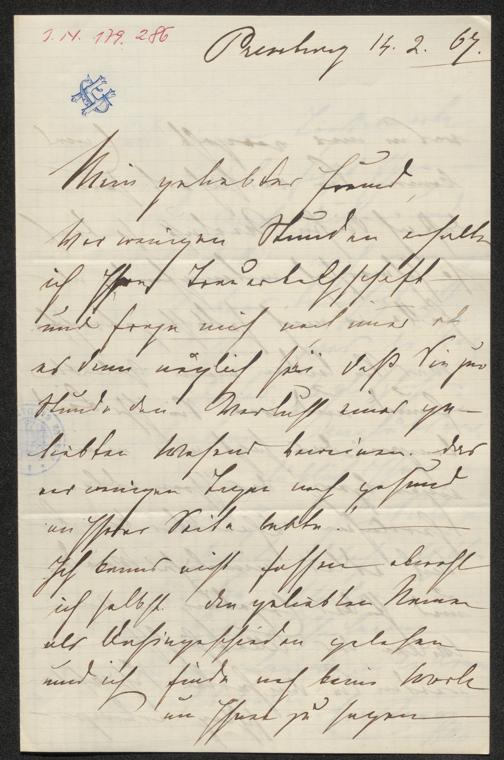 I.N. 179.286
Pressburg 14. 2. 67.
Mein geliebter Freund,
Vor wenigen Stunden erhalte
ich Ihre Trauerbothschaft
und frage mich noch immer ob
es denn möglich sei, daß Sie zur
Stunde den Verlust eines ge-
liebten Wesens beweinen, das
vor wenigen Tagen noch gesund
an Ihrer Seite lebte.
Ich kann's nicht fassen obwohl
ich selbst den geliebten Namen
als Dahingeschieden gelesen
und ich finde noch keine Worte
an Ihnen zu sagen